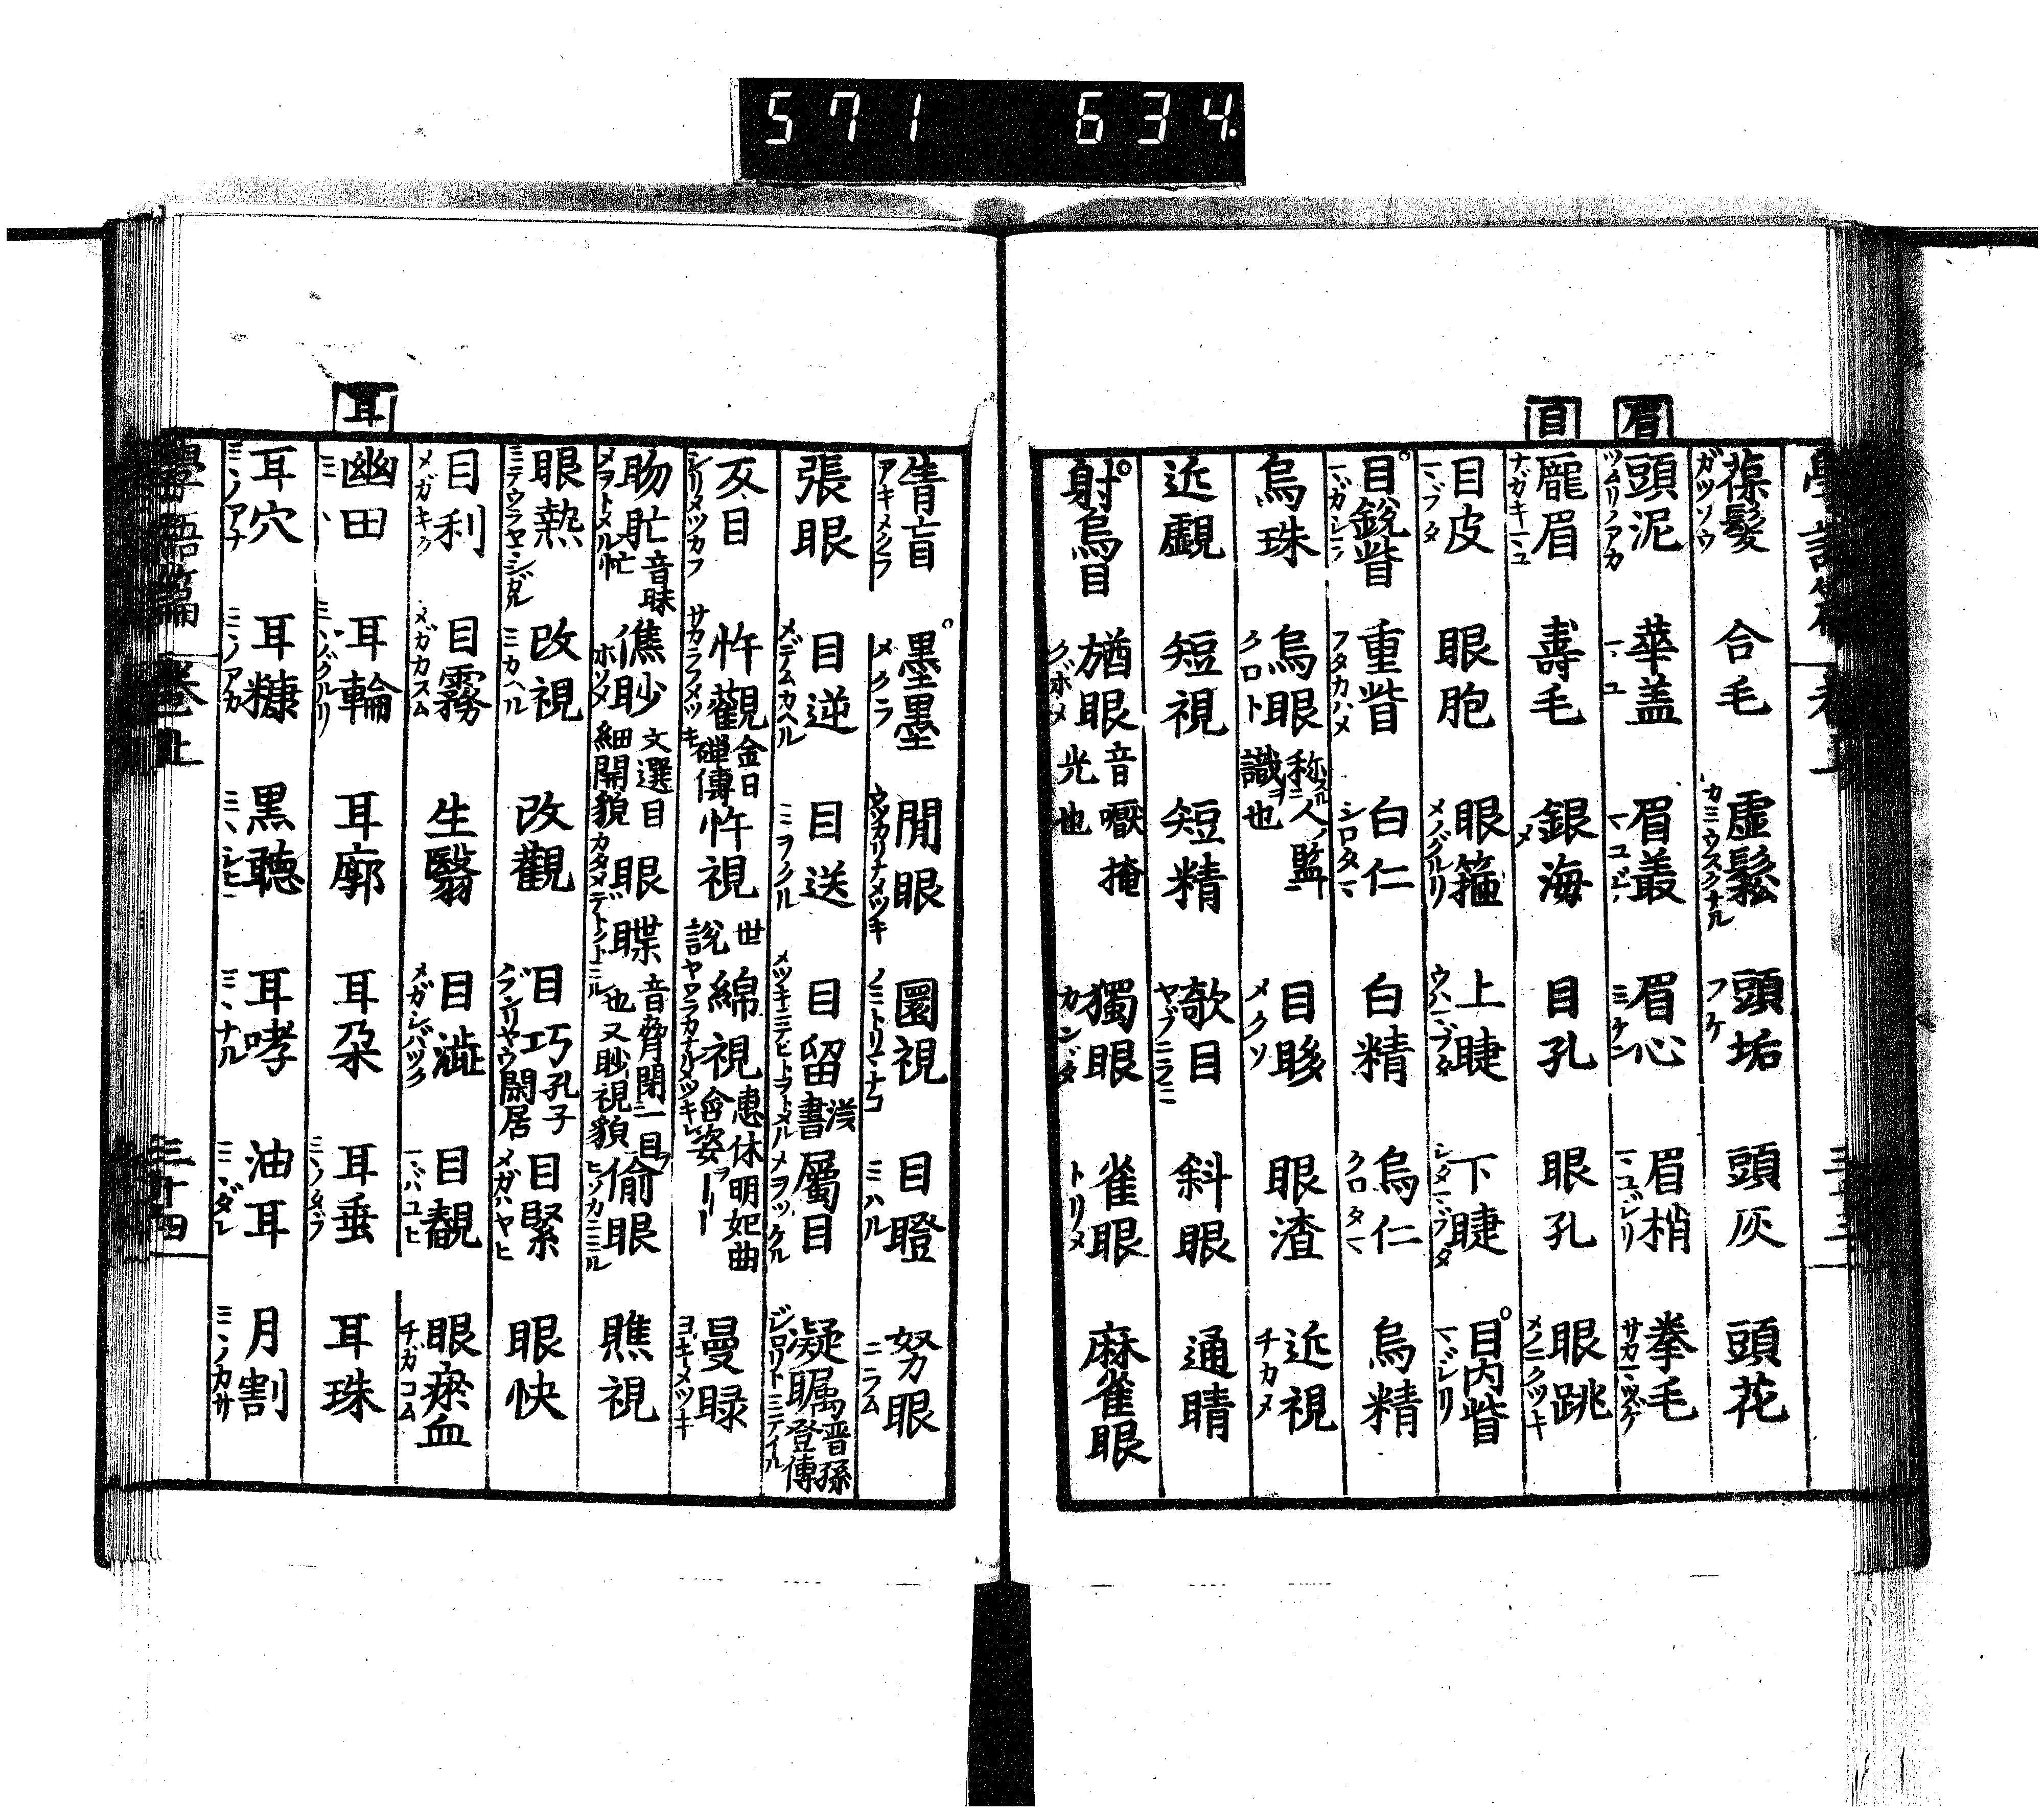 571 634
眉
目
葆髮 ガツソウ 合毛 虚鬆 カミウスクナル 頭垢 フケ 頭灰 頭花
頭泥 ツムリノアカ 華盖 マユ 眉叢 眉心 ミケン 眉梢 マユジリ 拳毛
龐眉 ナガキマユ 壽毛 銀海 メ 目孔 眼孔 眼跳
目皮 マブタ 眼胞 眼箍 メノグルリ 上睫 ウハマブタ 下睫 シタマブタ 目内眥 マジリ
目銳眥 マガシラ 重眥 フタカハメ 白仁 シロタマ 白精 烏仁 クロタマ 烏精
烏珠 烏眼 クロト 称スル人ノ監識ヲ也 目眵 メクソ 眼渣 近視 チカメ
近覷 短視 短精 欹目 ヤブニラミ 斜眼 通睛
射烏目 䐓眼 クボメ 獨眼 カンダ 雀眼 トリメ 麻雀眼
耳
青盲 アキメクラ 墨墨 メクラ 閒眼 ウツカリナメツキ 圜視 目瞪 ミハル 努眼 ニラム
張眼 目逆 メデムカヘル 目送 ミヲクル 目留 漢書 屬目 メヲツクル 凝矚 晋孫登傳 ジロリトミテイル
反目 忤觀 金日磾傳 忤視 世說 綿視 惠休明妃曲 曼睩 ヨキメツキ
音昧 ホソメ 文選目細開貌 眼䁋 又眇視貌 偷眼 ヒソカニミル 瞧視
眼熱 ミテウラヤミシガル 改視 ミカヘル 改觀 目巧 孔子閑居 目緊 メガハヤヒ 眼快
目利 メガキク 目霧 メガカスム 生翳 目澁 メガシバツク 目覩 マバユヒ 眼瘀血 チガコム
幽田 ミヽ 耳輪 ミヽノグルリ 耳廓 耳朶 耳垂 ミヽノタブ 耳珠
耳穴 ミヽノアナ 耳糠 ミヽノアカ 黒聴 耳哮 ミヽナル 油耳 ミヽダレ 月割 ミヽノカサ
學語篇 卷上 三十四